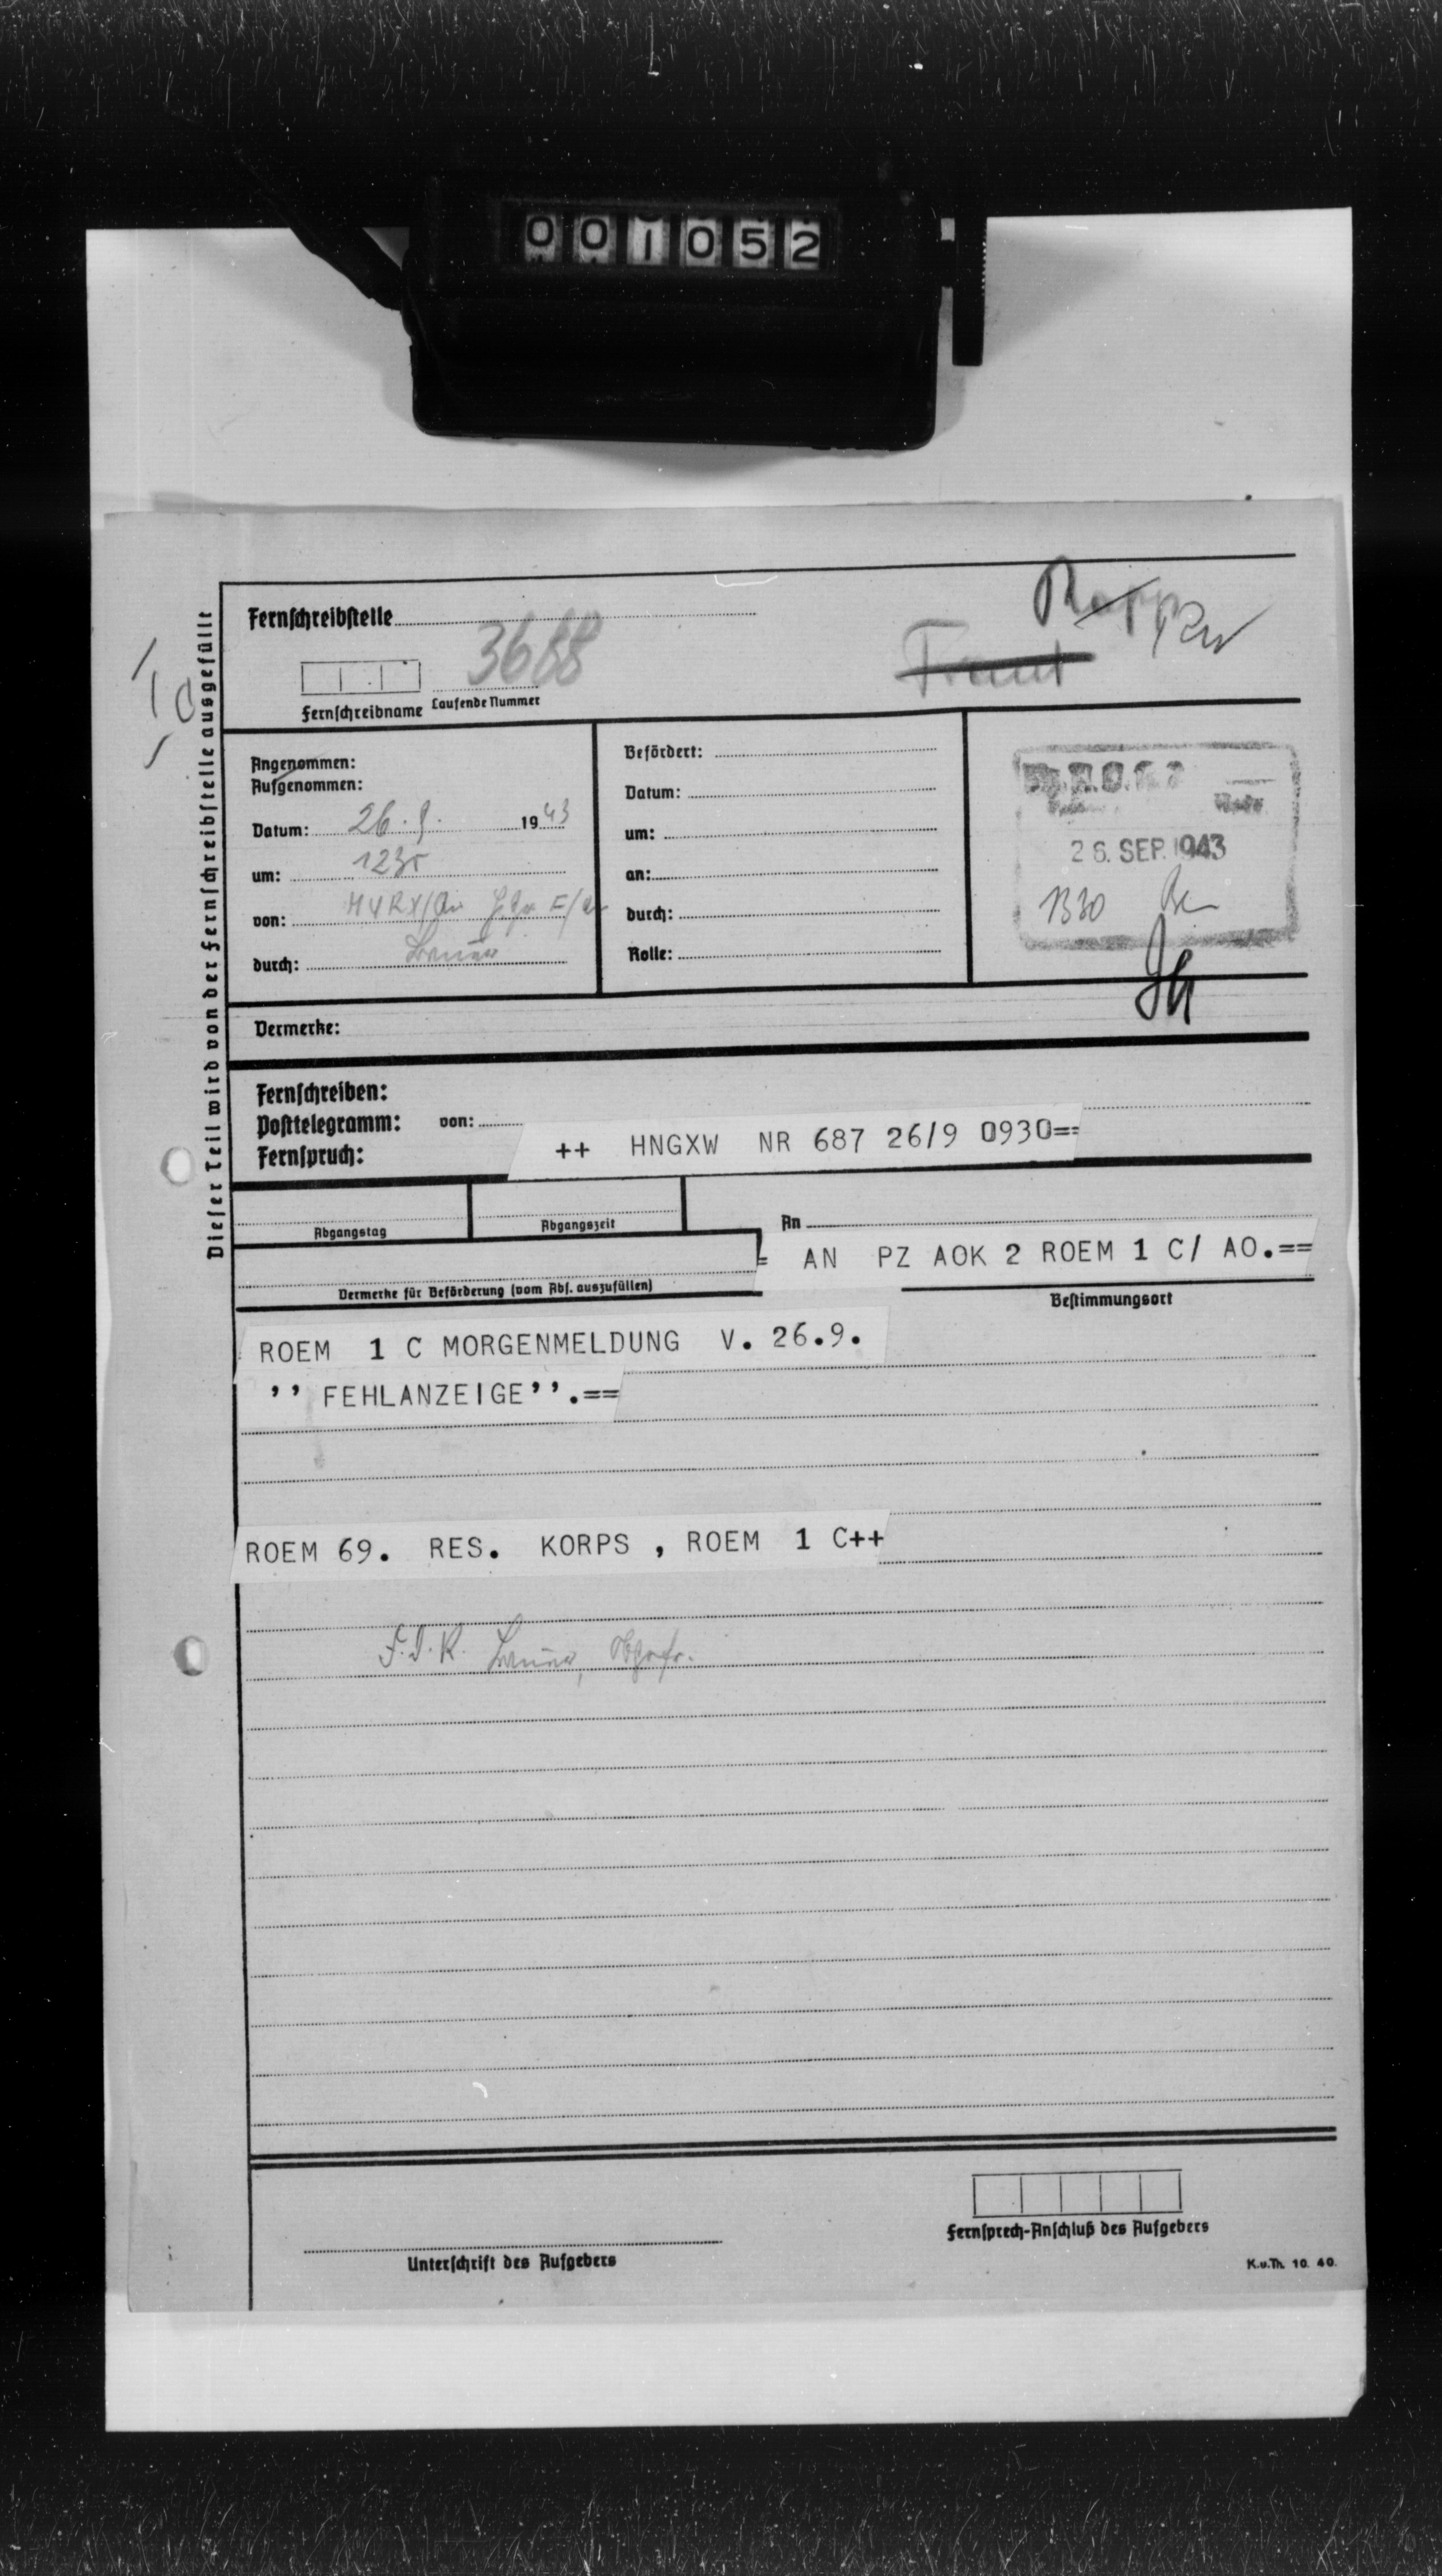 001052
Fernschreibstelle
3688
Fernschreibname Laufende Nummer
Dieser Teil wird von der Fernschreibstelle ausgefüllt
Angenommen:
Aufgenommen:
Datum: 26.9. 1943
um: 1235
von:
durch:
Befördert:
Datum:
um:
an:
durch:
Rolle:
26. SEP. 1943
1330
Vermerke:
Fernschreiben:
Posttelegramm: von:
Fernspruch:
++ HNGXW NR 687 26/9 0930==
Abgangstag Abgangszeit
An
= AN PZ AOK 2 ROEM 1 C/ AO.==
Vermerke für Beförderung (vom Abs. auszufüllen)
Bestimmungsort
ROEM 1 C MORGENMELDUNG V. 26.9.
’’ FEHLANZEIGE’’.==
ROEM 69. RES. KORPS , ROEM 1 C++
F.d.R. Obgefr.
Fernsprech-Anschluß des Aufgebers
Unterschrift des Aufgebers
K.u.Th. 10. 40.